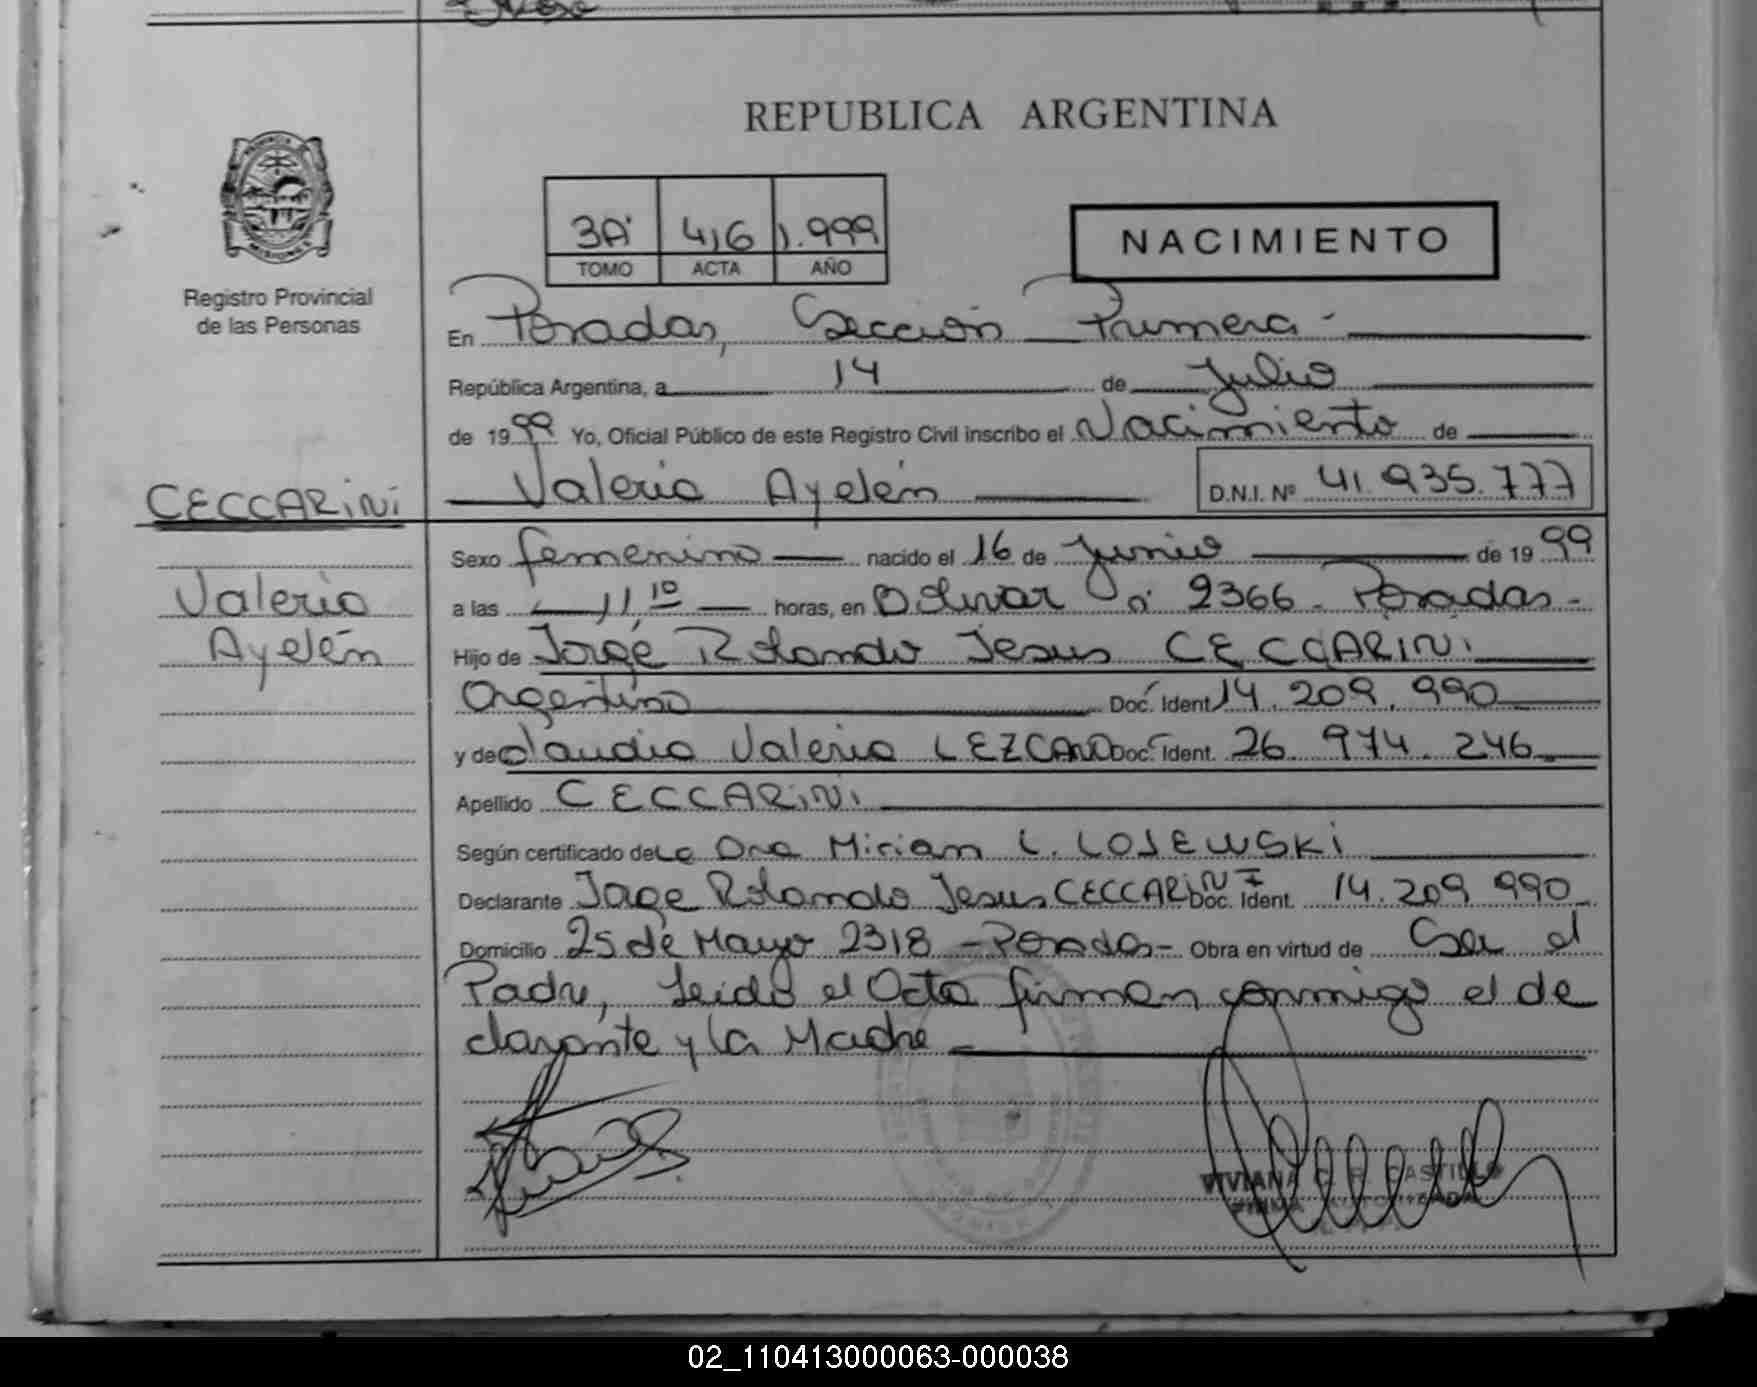 REPUBLICA ARGENTINA
3A 416 1.999
TOMO ACTA AÑO
NACIMIENTO
Registro Provincial
de las Personas
En Posadas, Seccion Primera
República Argentina, a 14 de Julio
de 1999 Yo, Oficial Público de este Registro Civil inscribo el Nacimiento de
Valeria Ayelén D.N.I. Nº 41.935.777
CECCARINI
Valeria
Ayelén
Sexo femenino nacido el 16 de Junio de 1999
a las 11,10 horas, en Bolivar nº 2366 - Posadas -
Hijo de Jorge Rolando Jesus CECCARINI
Argentino Doc. Ident. 14.209.990
y de Claudia Valeria LEZCANO Doc. Ident. 26.974.246
Apellido CECCARINI
Según certificado de La Dra Miriam L. LOSEWSKI
Declarante Jorge Rolando Jesus CECCARINI Doc. Ident. 14.209.990
Domicilio 25 de Mayo 2318 - Posadas - Obra en virtud de Ser el
Padre, leido el Acta firman conmigo el de
clarante y la Madre
VIVIANA CASTILLO
FIRMA AUTORIZADA
02_110413000063-000038